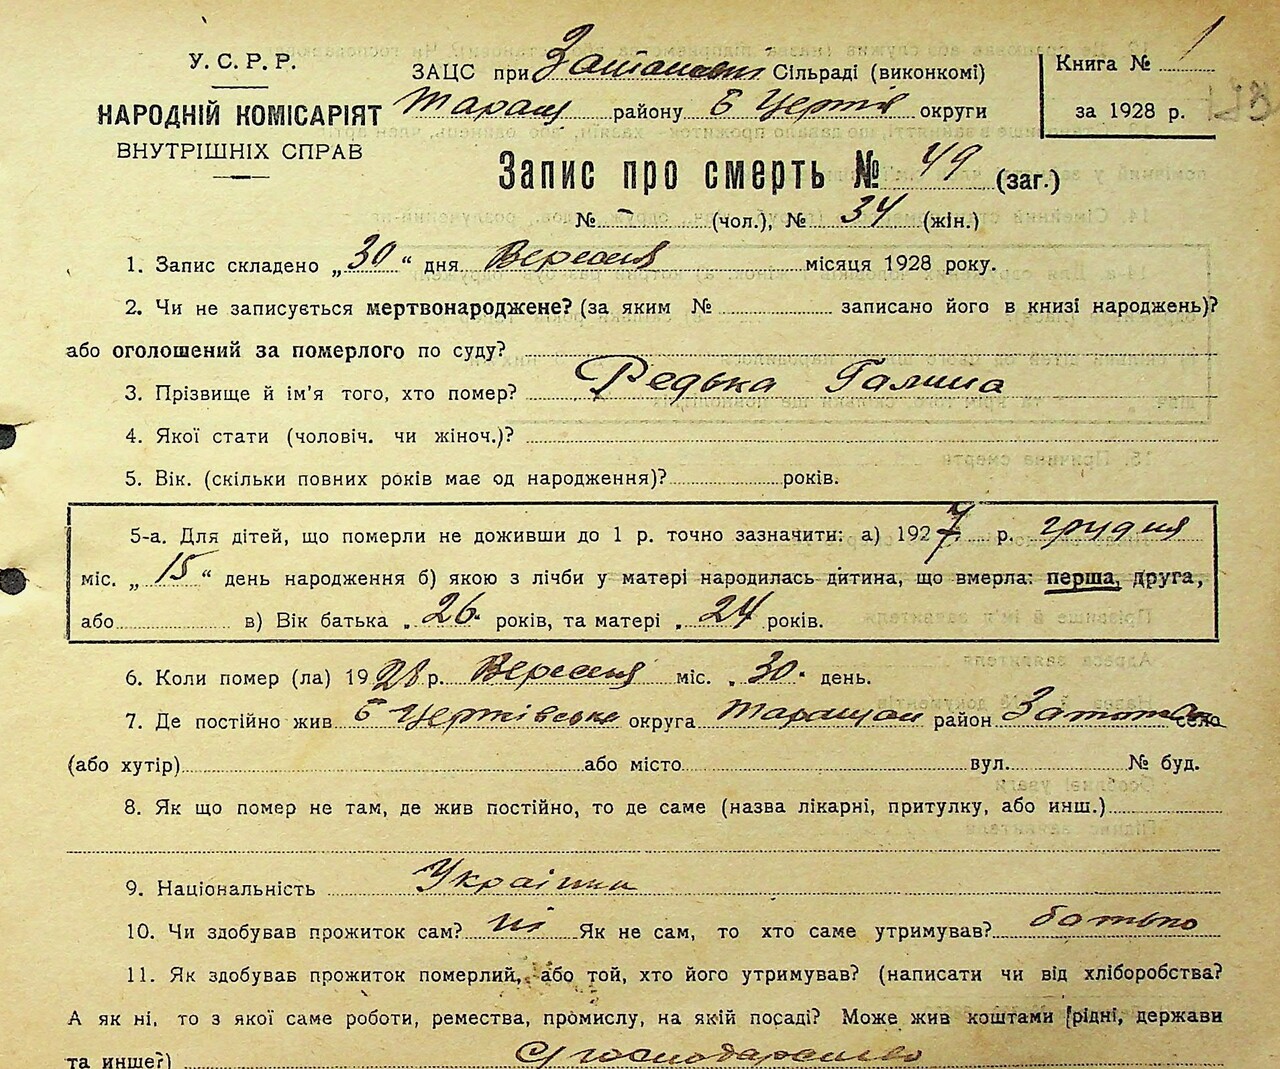 У. С. Р. Р.
НАРОДНІЙ КОМІСАРІЯТ
ВНУТРІШНІХ СПРАВ
ЗАЦС при Сільраді (виконкомі)
Таращ району Б Церків округи
Книга № 1
за 1928 р.
Запис про смерть № 49 (заг.)
№ – (чол.), № 34 (жін.)
1. Запис складено „30“ дня Вересня місяця 1928 року.
2. Чи не записується мертвонароджене? (за яким № записано його в книзі народжень)?
або оголошений за померлого по суду?
3. Прізвище й ім'я того, хто помер? Редька Галина
4. Якої стати (чоловіч. чи жіноч.)?
5. Вік. (скільки повних років має од народження)? років.
5-а. Для дітей, що померли не доживши до 1 р. точно зазначити: а) 1927 р. грудня
міс. „15“ день народження б) якою з лічби у матері народилась дитина, що вмерла: перша, друга,
або в) Вік батька „26. років, та матері „24 років.
6. Коли помер (ла) 1928 р. Вересня міс. „30. день.
7. Де постійно жив Б Церківське округа Таращан район село
(або хутір) або місто вул. № буд.
8. Як що помер не там, де жив постійно, то де саме (назва лікарні, притулку, або инш.)
9. Національність Українка
10. Чи здобував прожиток сам? ні Як не сам, то хто саме утримував? батько
11. Як здобував прожиток померлий, або той, хто його утримував? (написати чи від хліборобства?
А як ні, то з якої саме роботи, ремества, промислу, на якій посаді? Може жив коштами [рідні, держави
та инше?) Сг господарство